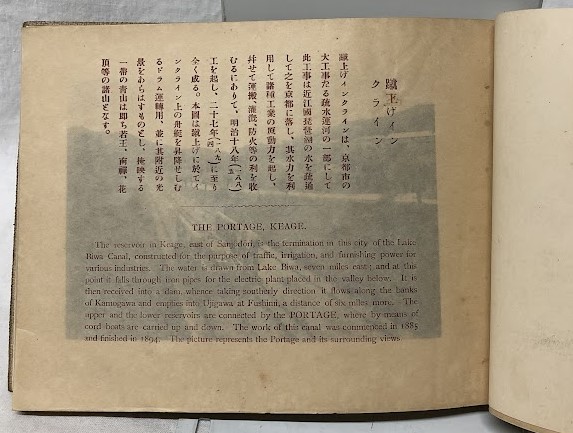 蹴上げイン
クライン
蹴上げインクラインは、京都市の
大工事たる疏水運河の一部にして
此工事は近江國琵琶湖の水を疏通
して之を京都に落し、其水力を利
用して諸種工業の原動力を起し、
幷せて運搬、灌漑、防火等の利を收
むるにありて、明治十八年(一八八五)に
工を起し、二十七年(一八九四)に至り
全く成る。本圖は蹴上げに於てイ
ンクライン上の舟艇を昇降せしむ
るドラム運轉用、並に其附近の光
景をあらはすものとし、掩映する
一帶の靑山は卽ち若王、南禪、花
頂等の諸山となす。
THE PORTAGE, KEAGE.
The reservoir in Keage, east of Sanjodori, is the termination in this city of the Lake
Biwa Canal, constructed for the purpose of traffic, irrigation, and furnishing power for
various industries. The water is drawn from Lake Biwa, seven miles east; and at this
point it falls through iron pipes for the electric plant placed in the valley below. It is
then received into a dam, whence taking southerly direction it flows along the banks
of Kamogawa and empties into Ujigawa at Fushimi, a distance of six miles more. The
upper and the lower reservoirs are connected by the PORTAGE, where by means of
cord boats are carried up and down. The work of this canal was commenced in 1885
and finished in 1894. The picture represents the Portage and its surrounding views